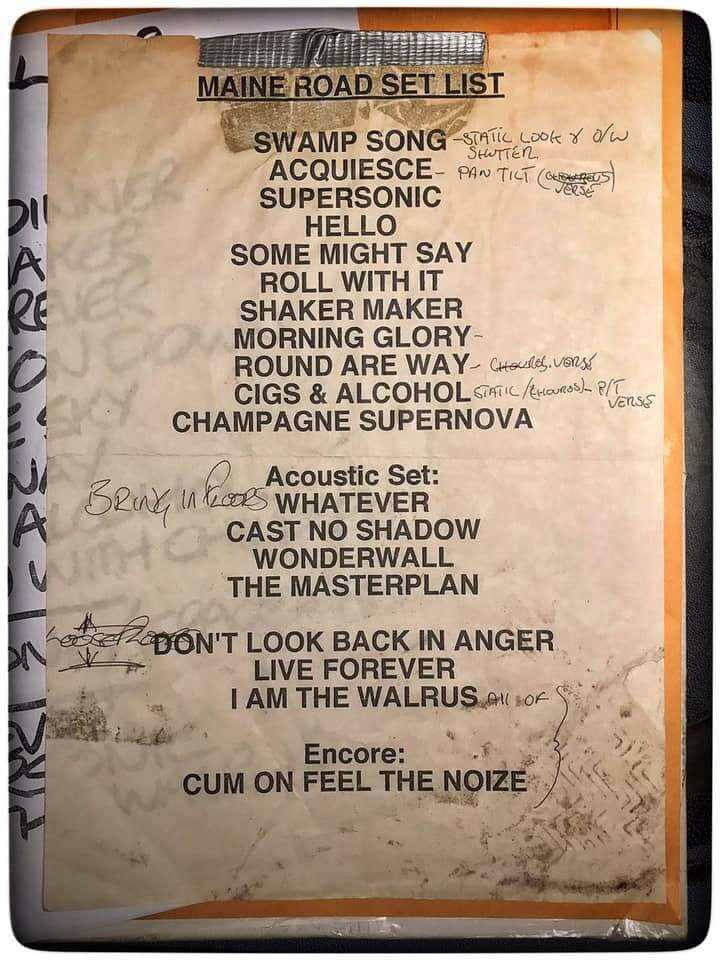 MAINE ROAD SET LIST
SWAMP SONG - STATIC LOOK & O/W
SHUTTER
ACQUIESCE - PAN TILT (CHOUROUS)
VERSE
SUPERSONIC
HELLO
SOME MIGHT SAY
ROLL WITH IT
SHAKER MAKER
MORNING GLORY -
ROUND ARE WAY - CHOUROS. VERSE
CIGS & ALCOHOL STATIC/(CHOUROS) - P/T
VERSE
CHAMPAGNE SUPERNOVA
Acoustic Set:
BRING IN FLOORS WHATEVER
CAST NO SHADOW
WONDERWALL
THE MASTERPLAN
DON'T LOOK BACK IN ANGER
LIVE FOREVER
I AM THE WALRUS All OF
Encore:
CUM ON FEEL THE NOIZE